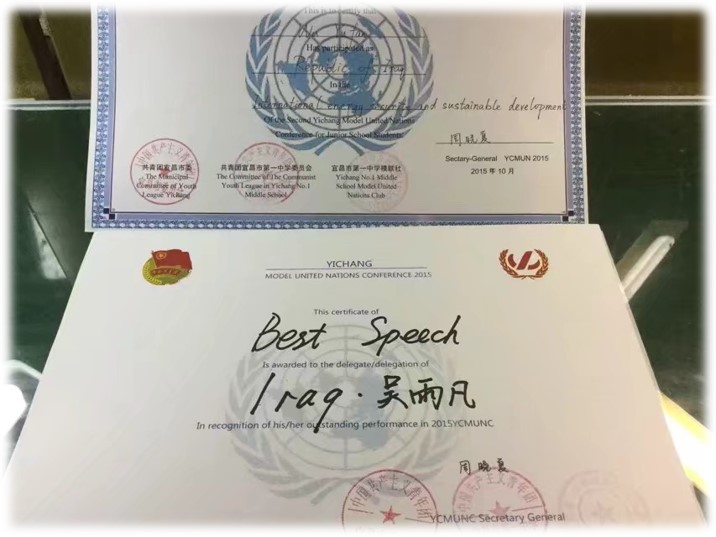 This is to certify that
Wu Yufan
Has participated as
Republic of Iraq
In the
International energy security and sustainable development
Of the Second Yichang Model United Nations
Conference for Junior School Students
周晓夏
Sectary-General YCMUN 2015
2015年10月
共青团宜昌市委
The Municipal
Committee of Youth
League Yichang
共青团宜昌市第一中学委员会
The Committee of The Communist
Youth League in Yichang No.1
Middle School
宜昌市第一中学模联社
Yichang No.1 Middle
School Model United
Nations Club
YICHANG
MODEL UNITED NATIONS CONFERENCE 2015
This certificate of
Best Speech
Is awarded to the delegate/delegation of
Iraq·吴雨凡
In recognition of his/her outstanding performance in 2015YCMUNC
周晓夏
中国共产主义青年团
中国共产主义青年团
YCMUNC Secretary General